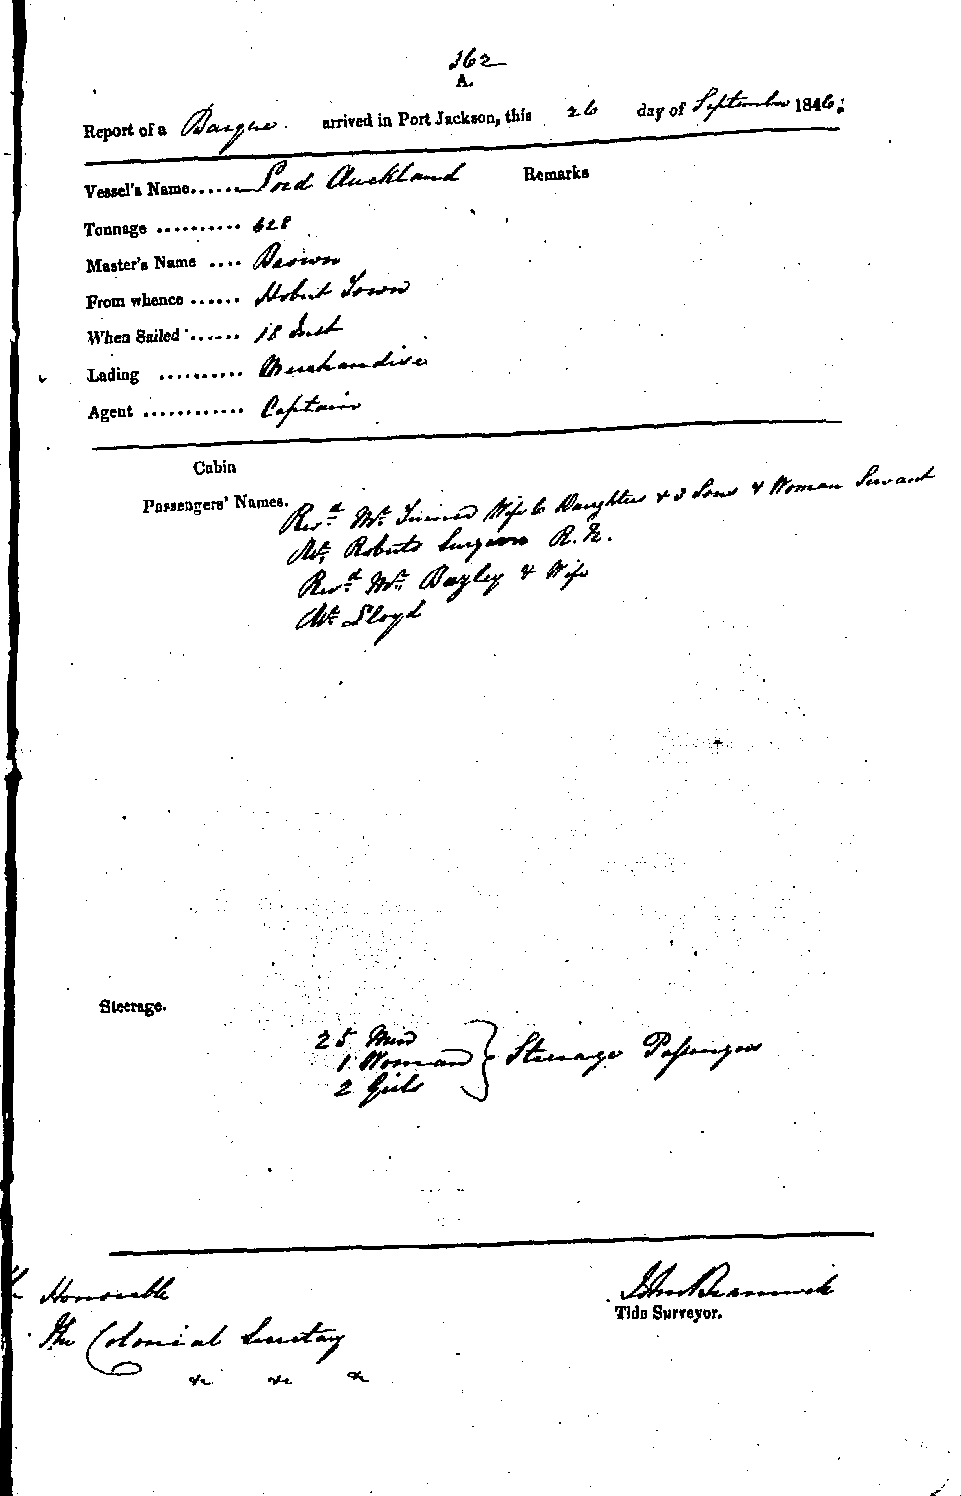 162
A.
Report of a Barque arrived in Port Jackson, this 26 day of September 1846:
Vessel's Name...... Lord Auckland Remarks
Tonnage .......... 628
Master's Name .... Brown
From whence ...... Hobart Town
When Sailed ...... 18 Inst
Lading .......... Merchandise
Agent ............ Captain
Cabin
Passengers' Names. Revd Mr Wife 6 Daughters & 3 Sons & Woman Servant
Mr Roberts Surgeon R.N.
Revd Mr Bagley & Wife
Mr Lloyd
Steerage.
25 Men
1 Woman } Steerage Passengers
2 Girls
Honorable
The Colonial Secretary
&c &c &c
John Bramwell
Tide Surveyor.